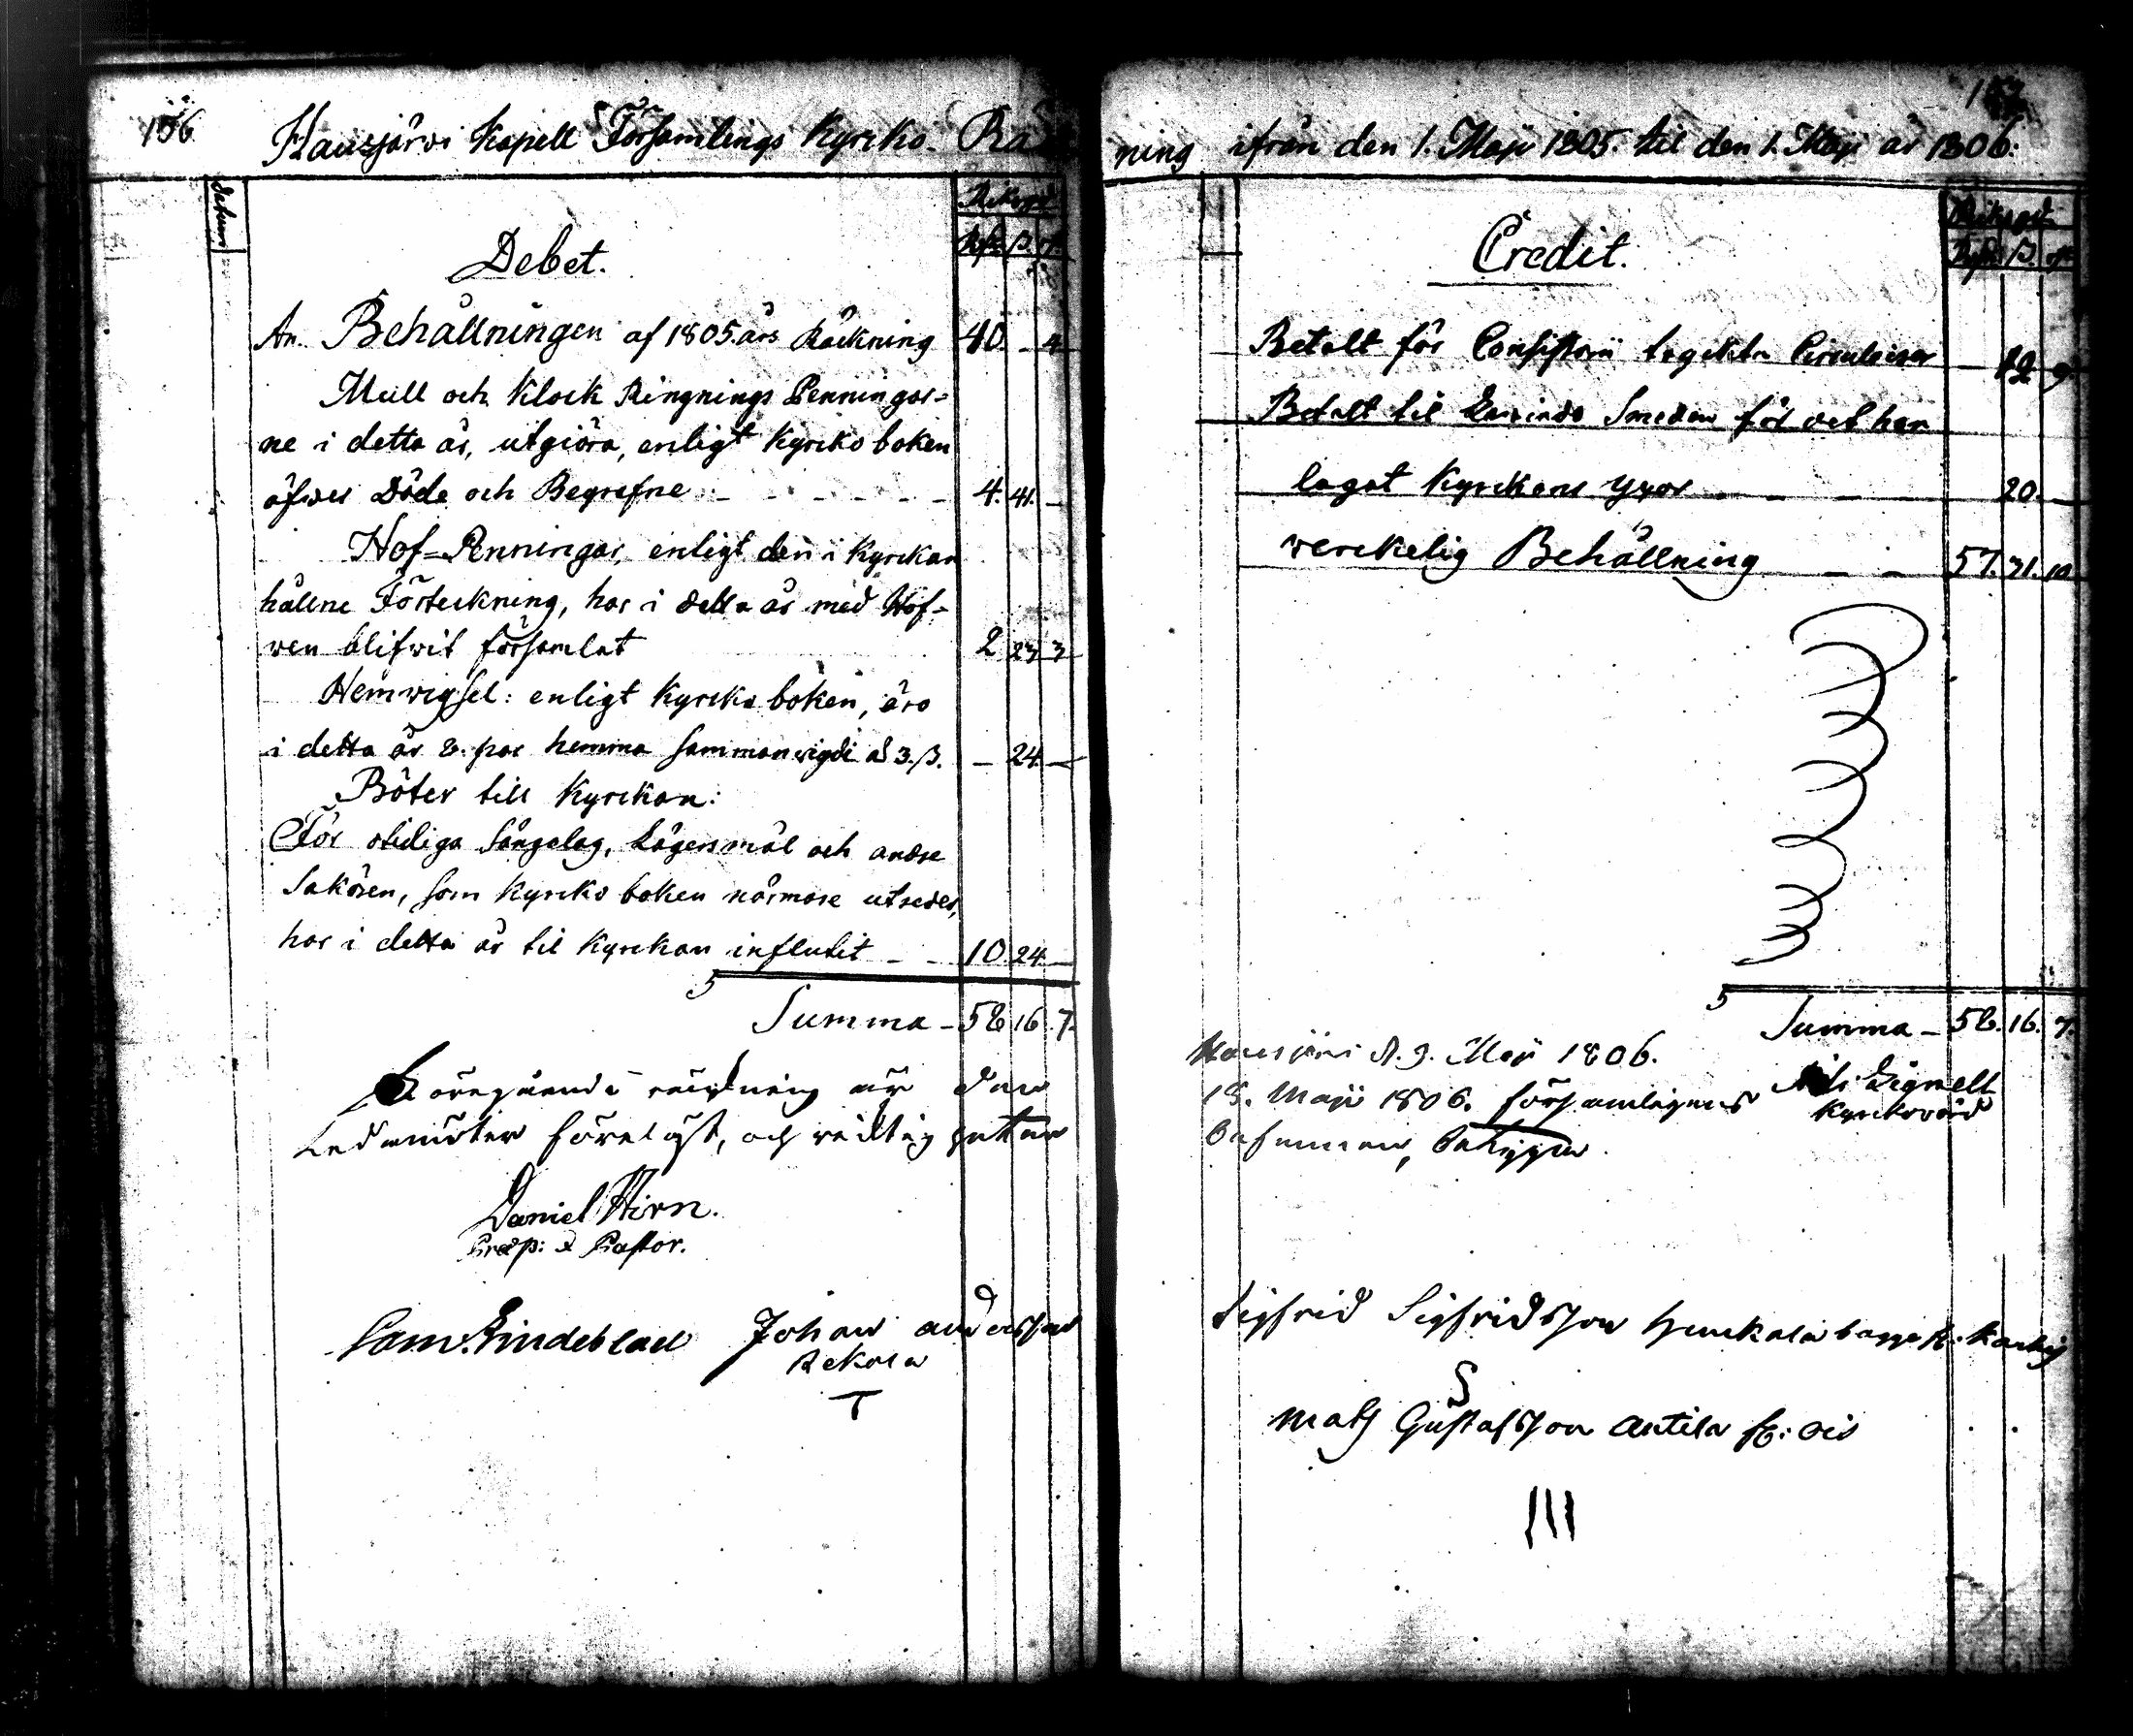 156
Hausjärvi Kapell Församlings Kyrcko- Räk
Datum
Riksgd.
Rdr. ß. rst.
Debet.
An. Behållningen af 1805. års Räckning 40. - 4
Mull och Klock Ringnings Penningar=
ne i detta år, utgiöra, enligt Kyrcko boken
öfwer Döde och Begrafne - - - - - - 4. 41. -
Hof=Penningar, enligt den i Kyrckan
hållne Förteckning, har i detta år med Hof=
wen blifwit församlat 2 23 3
Hemwigsel: enligt Kyrcko boken, äro
i detta år 8. par hemma sammanvigde a 3. ß. - 24. -
Böter till Kyrckan:
För otidiga Sängalag, Lägersmål och andre
Sakören, som Kyrcko boken närmare utreder,
har i detta år til Kyrckan influtit - - 10. 24. -
Summa - 58 16. 7.
Föregående räkning är
Ledamöter föreläst, och riktig
Daniel Hirn.
Præp: & Pastor.
Sam. Lindeblad Johan andersson
Rekola
T
157
ning ifrån den 1. Maji 1805. til den 1. Maji år 1806.
Riksgd.
Rdr. ß. rst.
Credit.
Betalt för Consistorii tagckta Circulairer - 12 9
Betalt til Smeden för det han
lagat Kyrckans yxor - - - - 20. -
verckelig Behållning - - 57. 31. 10
Summa - 58. 16. 7.
Hausjärvi d. 3. Maji 1806.
Nils Lignell
Kyrckovärd
18. Maji 1806. församlingens
Sigfrid Sigfridsson
S
Mats Gustafsson Antila fr: Ois
III